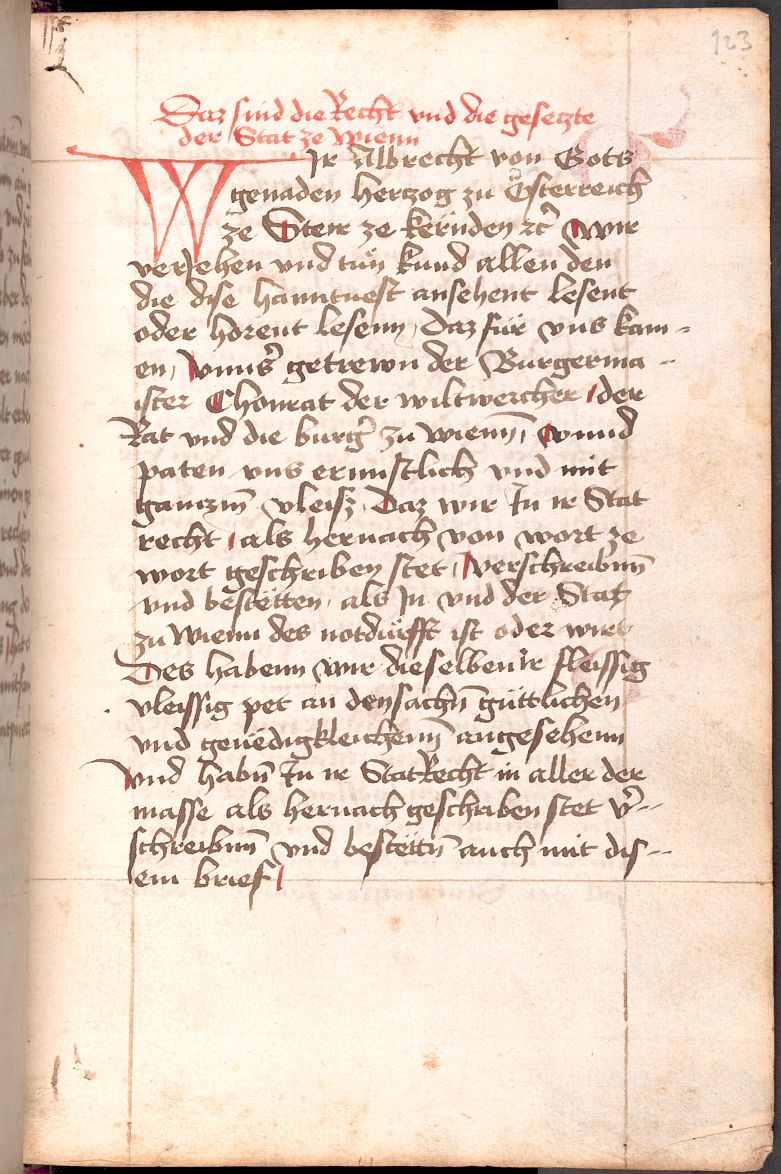 123
Daz sind die Recht vnd die gesetzte
der Stat ze Wienn
WJr Albrecht von Gots
genaden Hertzog zu Österreich
ze Steir ze kërnden ꝛc̄ wir
veriehen vnd tün kund allen den
die dise hanntuest ansehent lesent
oder horent lesenn, Daz für vns kam=
en, vnns̄ getrewn der Burgerma=
ister Chonrat der wiltwercher der
Rat vnd die burḡ zu wienn̄, vnnd
paten vns ernnstlich vnd mit
ganczm̄ vleisz, Daz wir Jn ir Stat
recht als hernach von wort ze
wort geschriben stet, verschreibnn̄
vnd bestëtten, als Jn vnd der Stat
zu Wienn des notdürfft ist oder wirt
Des habenn wir dieselben ir fleissig
vleissig pet an den sachn̄ güttlichen
vnd genëdigkleichenn̄ angesehenn
vnd habn̄ Jn ir StatRecht in aller der
masse als hernach geschriben stet v̄=
schreibnn̄ vnd bestëttn̄ auch mit dis=
em brief